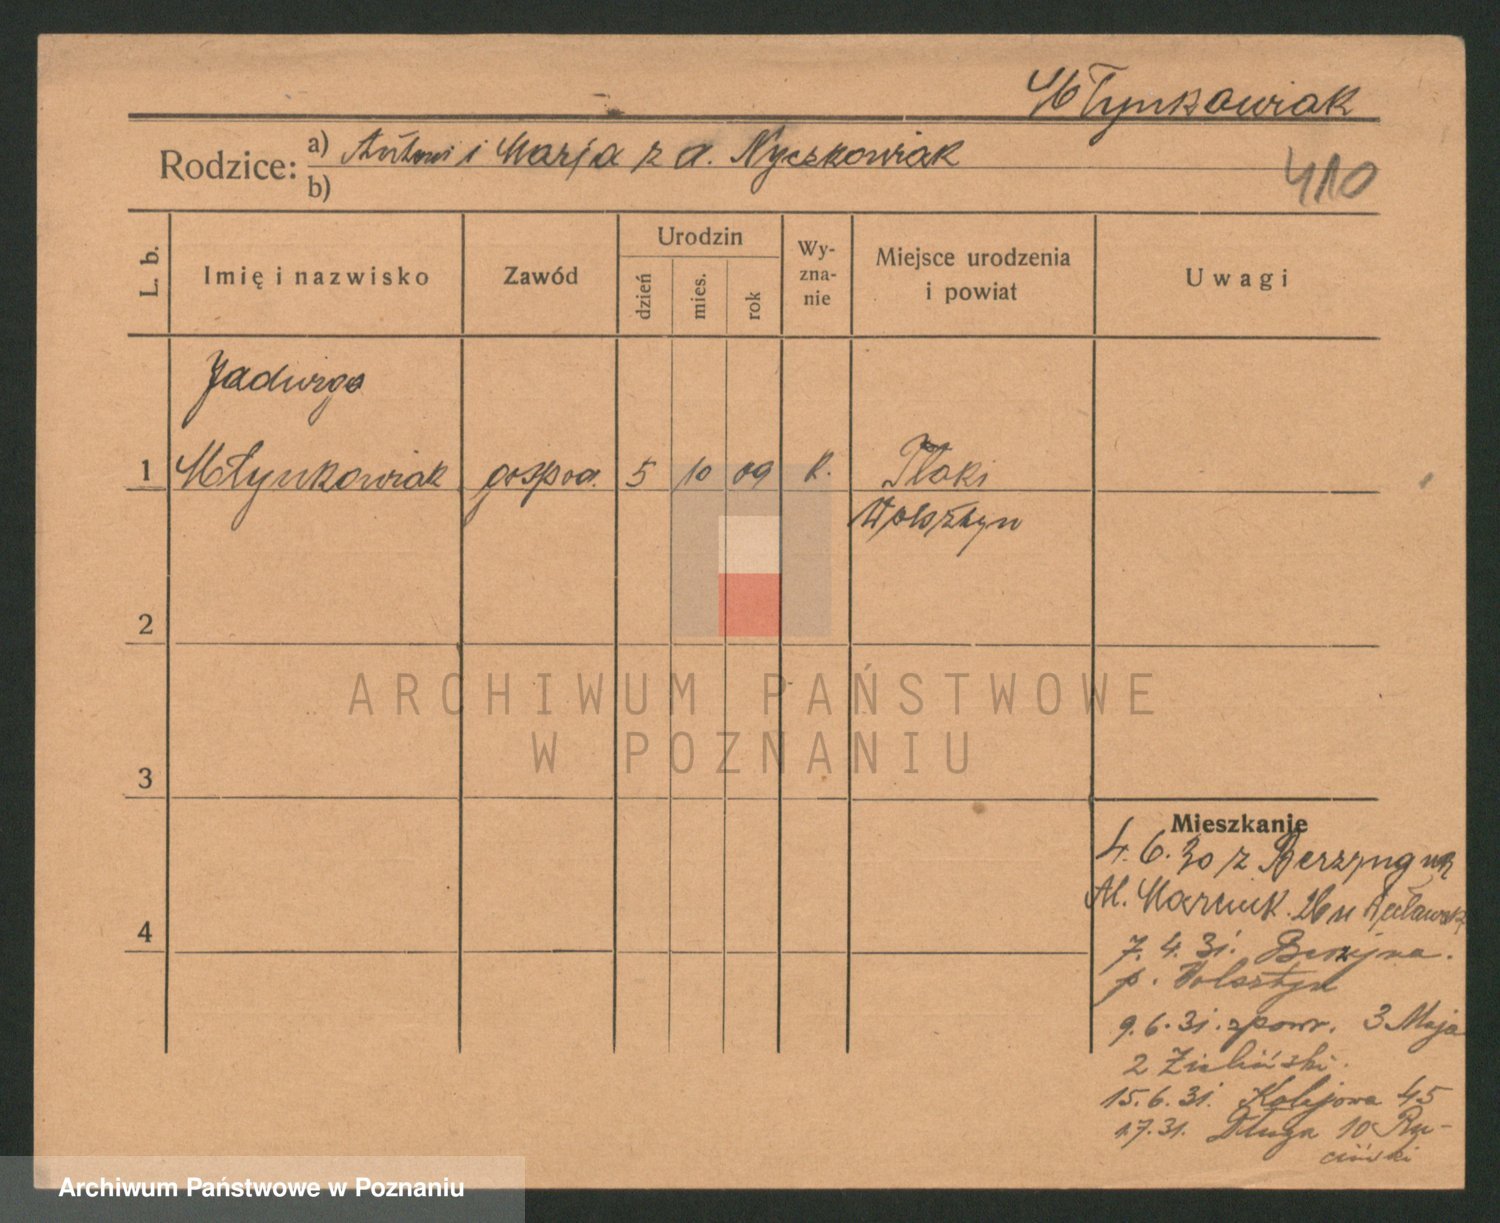 Młynkowiak
Rodzice: a) Antoni i Marja z d. Nyczkowiak
b)
410
L. b.
Imię i nazwisko
Zawód
Urodzin
dzień
mies.
rok
Wy-
zna-
nie
Miejsce urodzenia
i powiat
Uwagi
Jadwiga
1 Młynkowiak gospod. 5 10 09 k. Tłoki
Wolsztyn
2
ARCHIWUM PAŃSTWOWE
W POZNANIU
3
Mieszkanie
4. 6. 30 z
Al. Marcink. 26 u
4
7. 4. 31.
p. Wolsztyn
9. 6. 31. zpowr. 3 Maja
2 Zieliński.
15. 6. 31. Kolejowa 45
1.7.31. Długa 10 Ry-
Archiwum Państwowe w Poznaniu